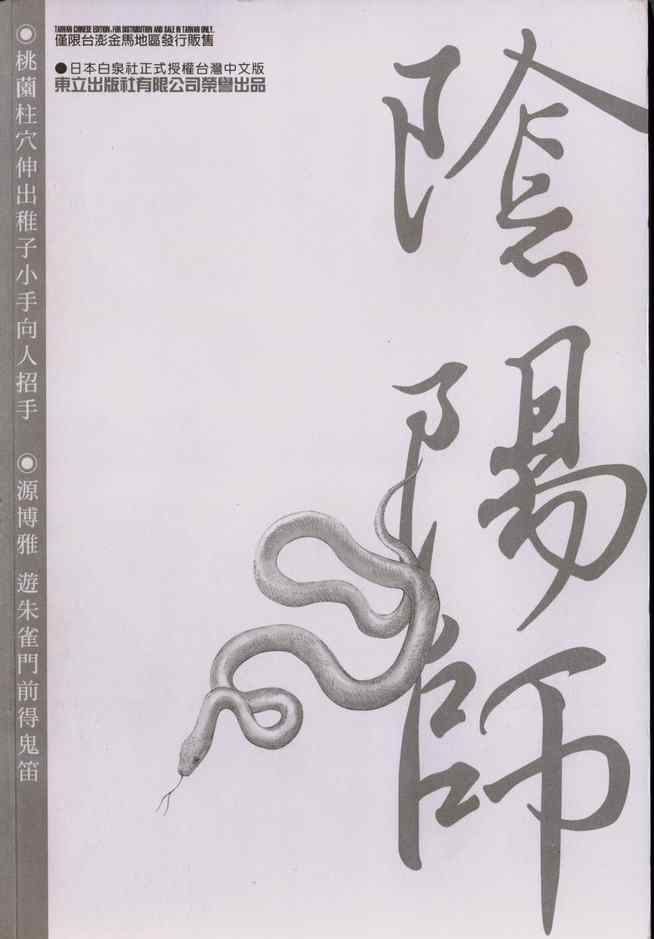 TAIWAN CHINESE EDITION, FOR DISTRIBUTION AND SALE IN TAIWAN ONLY.
僅限台澎金馬地區發行販售
●日本白泉社正式授權台灣中文版
東立出版社有限公司榮譽出品
陰陽師
◉桃薗柱穴伸出稚子小手向人招手
◉源博雅 遊朱雀門前得鬼笛